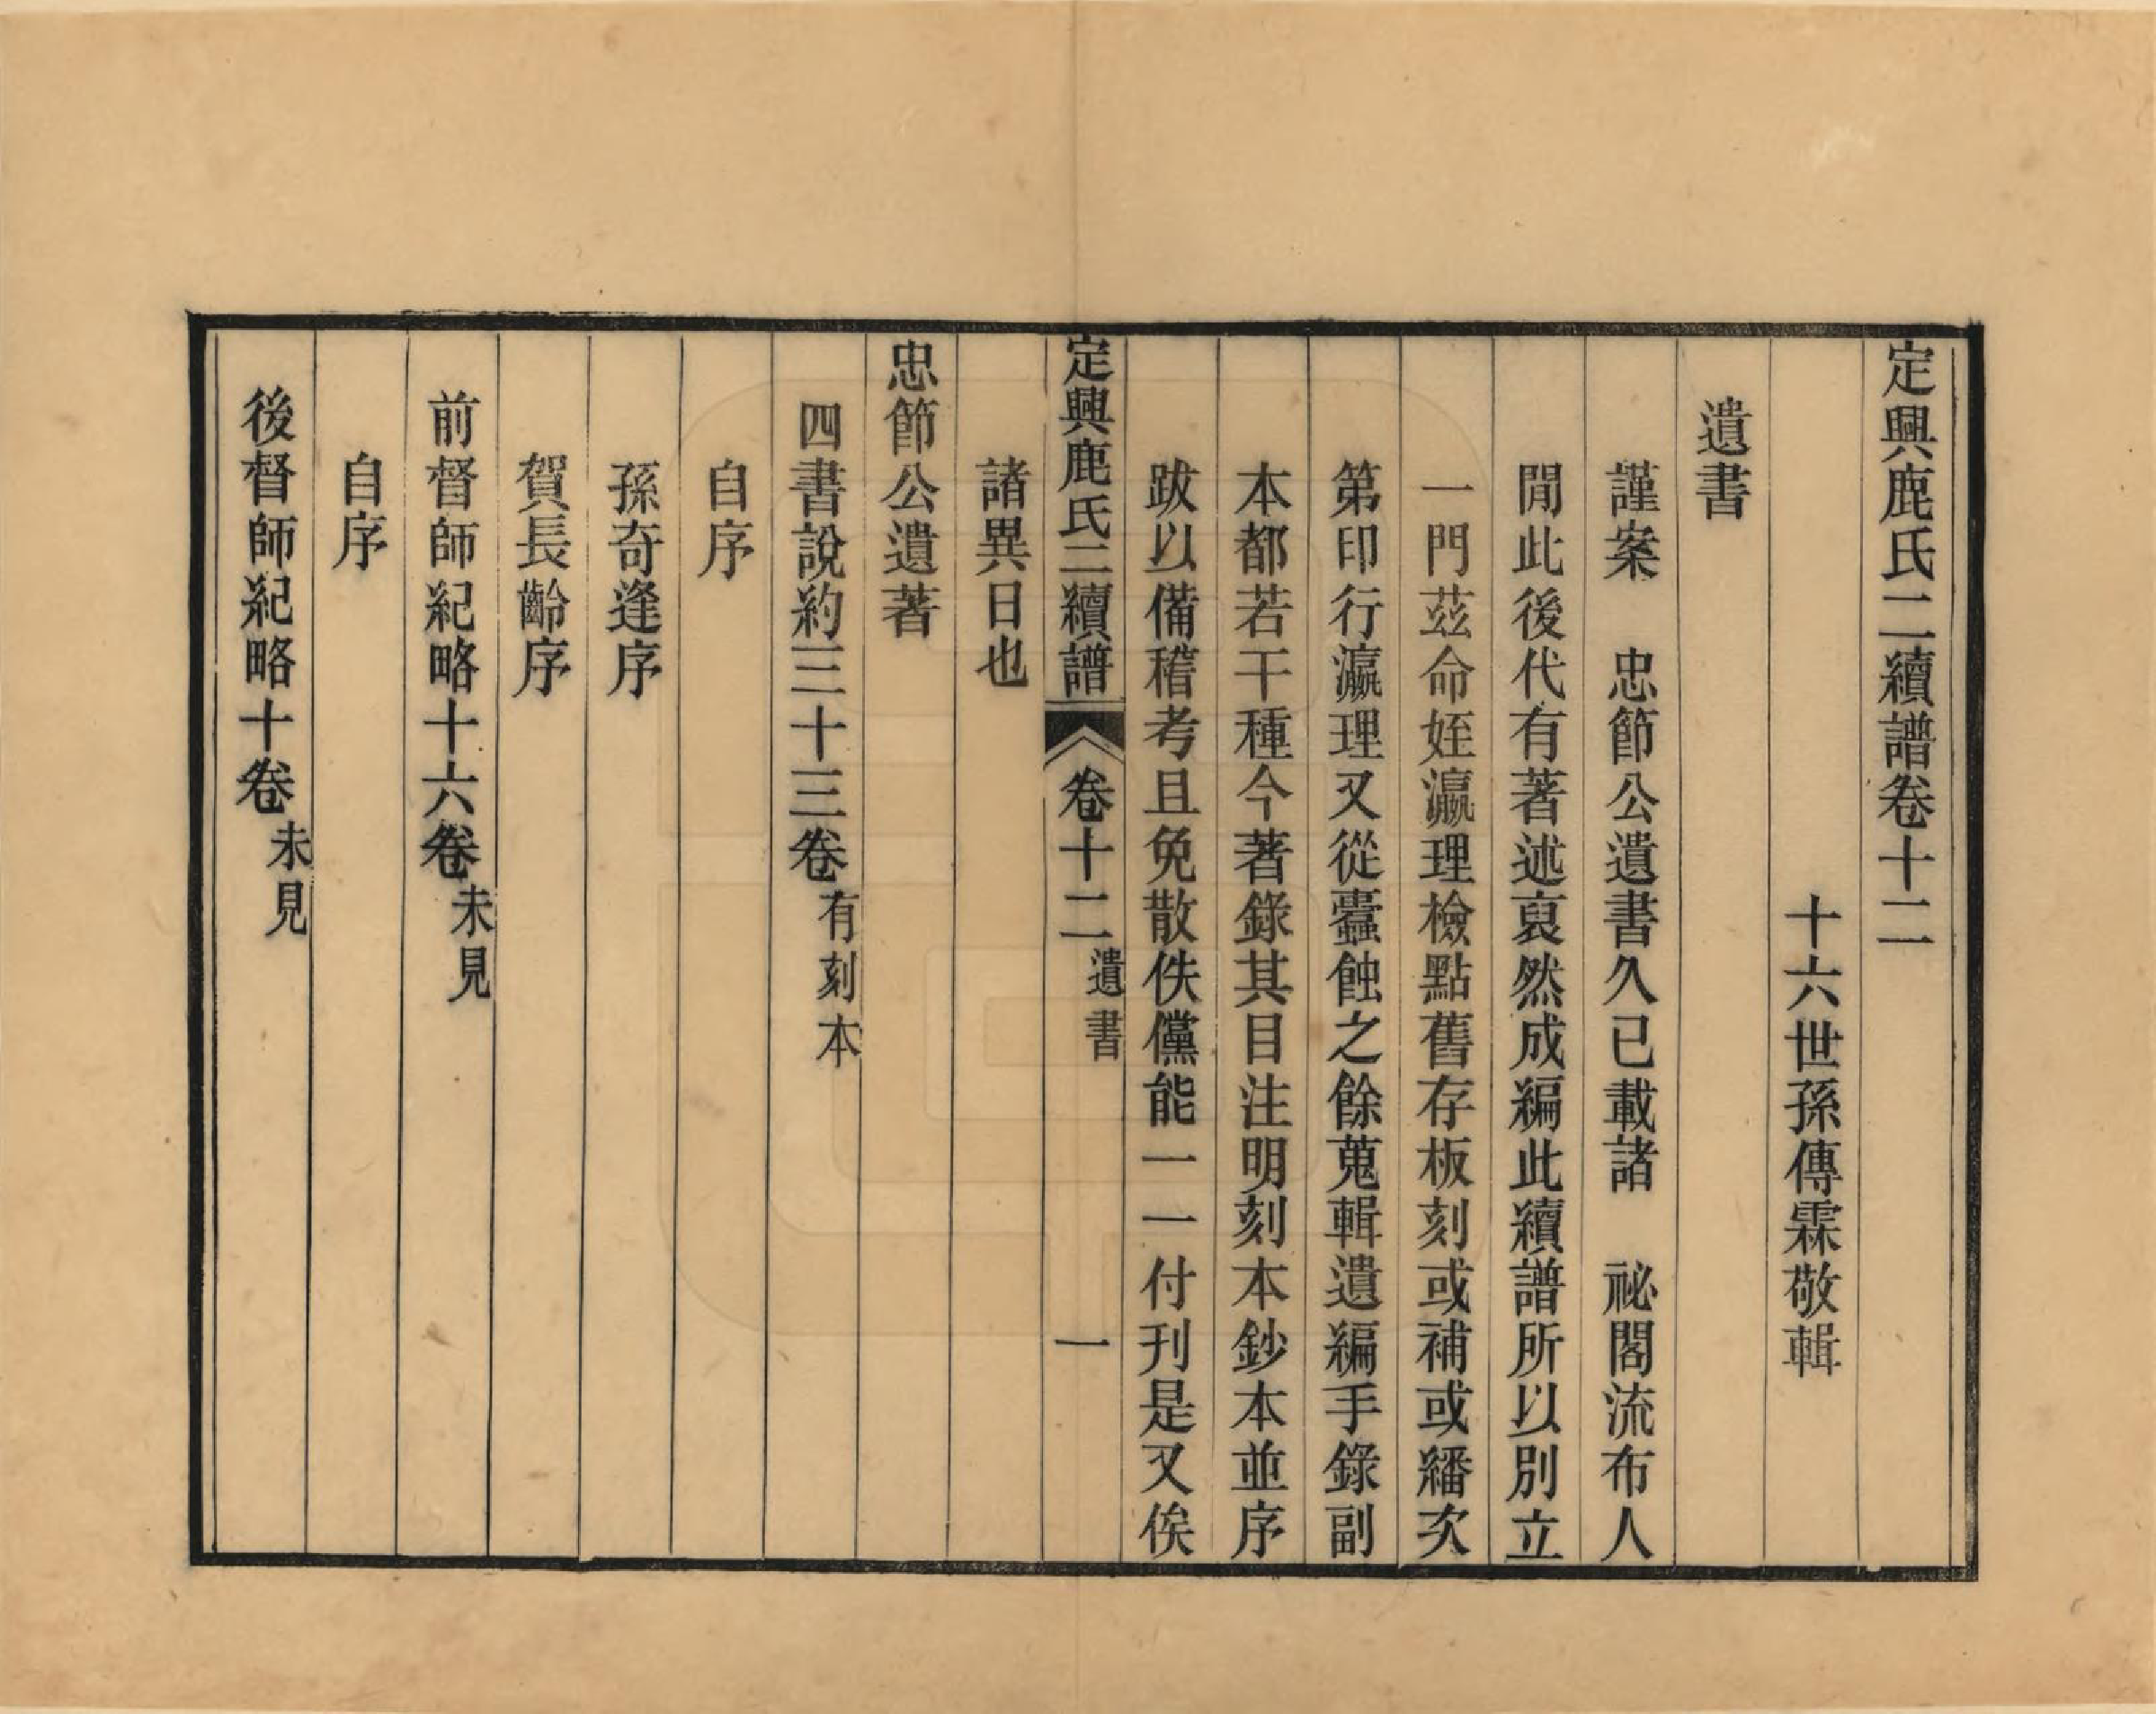 定興鹿氏二續譜卷十二
十六世孫傳霖敬輯
遺書
謹案　忠節公遺書久已載諸　祕閣流布人
閒此後代有著述裒然成編此續譜所以別立
一門茲命姪瀛理檢點舊存板刻或補或繙次
第印行瀛理又從蠹蝕之餘蒐輯遺編手錄副
本都若干種今著錄其目注明刻本鈔本並序
跋以備稽考且免散佚儻能一一付刊是又俟
定興鹿氏二續譜　卷十二　遺書　一
諸異日也
忠節公遺著
四書說約三十三卷　有刻本
自序
孫奇逢序
賀長齡序
前督師紀略十六卷　未見
自序
後督師紀略十卷　未見